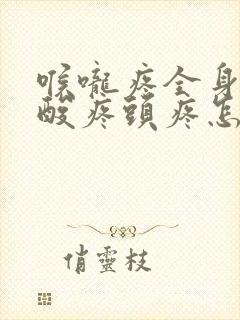 喉嚨疼全身
酸疼頭疼怎
俏靈枝